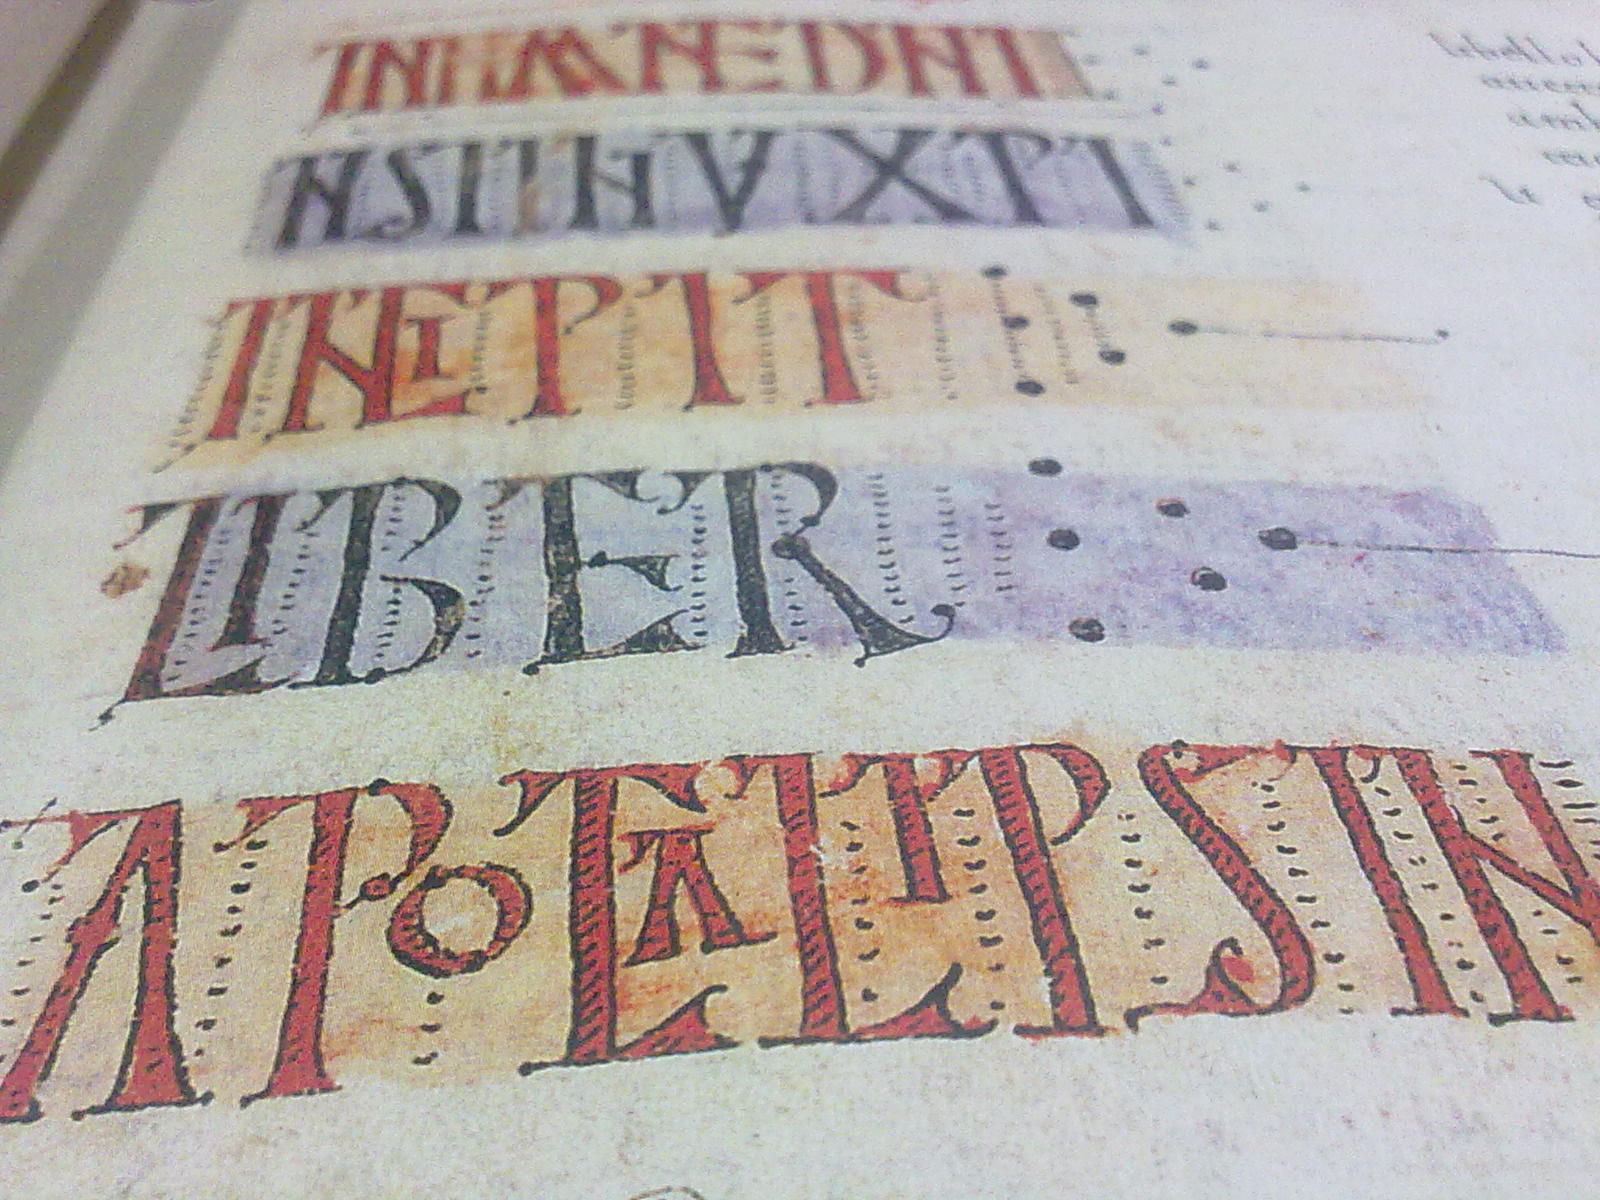 IN NMNE DNI
NSI IHV XPI
INCIPIT
LIBER
APOCALIPSIN